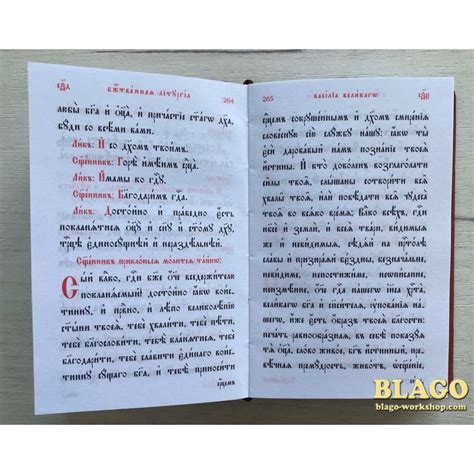 сѯ҃д Бж҇твеннаѧ літꙋргі́а 264
любы̀ бг҃а и҆ ѻ҆ц҃а̀, и҆ прича́стїе ст҃а́гѡ дх҃а,
бꙋ́ди со всѣ́ми ва́ми.
Ли́къ: И҆ со дꙋ́хомъ твои́мъ.
Сщ҃е́нникъ: Горѣ̀ и҆мѣ́имъ сердца̀.
Ли́къ: И҆́мамы ко гдⷭ҇ꙋ.
Сщ҃е́нникъ: Благодари́мъ гдⷭ҇а.
Ли́къ: Досто́йно и҆ пра́ведно є҆́сть
покланѧ́тисѧ ѻ҆ц҃ꙋ̀ и҆ сн҃ꙋ и҆ ст҃о́мꙋ дх҃ꙋ,
трⷪ҇цѣ є҆диносꙋ́щнѣй и҆ нераздѣ́льнѣй.
Сщ҃е́нникъ приклони́всѧ мо́литсѧ та́йнѡ:
Сый влⷣко, гдⷭ҇и бж҃е ѻ҆́ч҃е вседержи́телю
покланѧ́емый! досто́йно ꙗ҆́кѡ вои́стин-
нꙋ, и҆ првⷣно, и҆ лѣ́по великолѣ́пїю
ст҃ы́ни твоеѧ̀, тебѐ хвали́ти, тебѐ пѣ́ти,
тебѐ благослови́ти, тебѣ̀ кла́нѧтисѧ, тебѐ
благодари́ти, тебѐ сла́вити є҆ди́наго и҆́стин-
ннꙋ сꙋ́щаго бг҃а, и҆ тебѣ̀ приноси́ти
се́рдцемъ
265 Васі́лїа вели́кагѡ сѯ҃е
се́рдцемъ сокрꙋше́ннымъ и҆ дꙋ́хомъ смире́нїѧ
слове́снꙋю сїю̀ слꙋ́жбꙋ на́шꙋ: ꙗ҆́кѡ ты̀
є҆сѝ дарова́вый на́мъ позна́нїе твоеѧ̀
и҆́стины. И҆ кто̀ дово́ленъ возглаго́лати
си̑лы твоѧ̑, слы̑шаны сотвори́ти всѧ̑
хвалы̑ твоѧ̑, и҆лѝ повѣ́дати всѧ̑ чꙋдеса̀
твоѧ̑ во всѧ́ко вре́мѧ; влⷣко всѣ́хъ, гдⷭ҇и
нб҃сѐ и҆ землѝ, и҆ всеѧ̀ тва́ри, ви́димыѧ
же и҆ неви́димыѧ, сѣдѧ́й на прⷭ҇то́лѣ
сла́вы и҆ призира́ѧй бє́здны, безнача́льне,
неви́диме, непостижи́ме, неѡпи́санне,
неизмѣ́нне, ѻ҆́ч҃е гдⷭ҇а на́шегѡ і҆и҃са хрⷭ҇та̀,
вели́кагѡ бг҃а и҆ спаси́телѧ, ᲂу҆пова́нїѧ на́-
шегѡ, и҆́же є҆́сть ѻ҆́бразъ твоеѧ̀ бла́гости:
печа́ть равноѻбра́знаѧ, въ себѣ̀ показꙋ́ѧ тѧ̀
ѻ҆ц҃а̀, сло́во живо́е, бг҃ъ и҆́стинный, пре-
вѣ́чнаѧ премꙋ́дрость, живо́тъ, ѡ҆сщ҃е́нїе,
BLAGO
blago-workshop.com